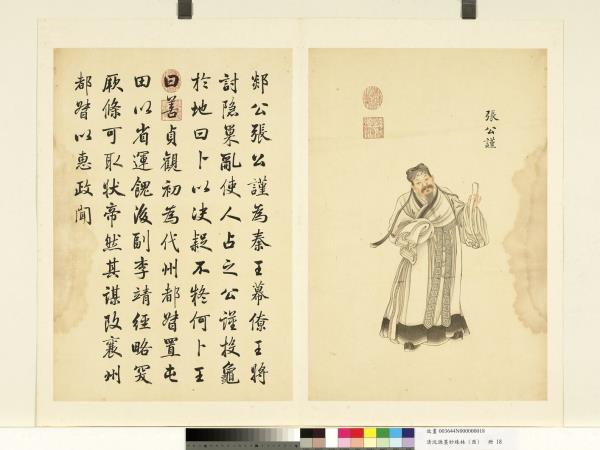 張公謹
郯公張公謹為秦王幕僚王將
討隱巢亂使人占之公謹投龜
於地曰卜以決疑不疑何卜王
曰善貞觀初為代州都督置屯
田以省運餽後副李靖經略突
厥條可取狀帝然其謀改襄州
都督以惠政聞
故畫 003644N000000018
墨妙珠林(酉) 冊 18